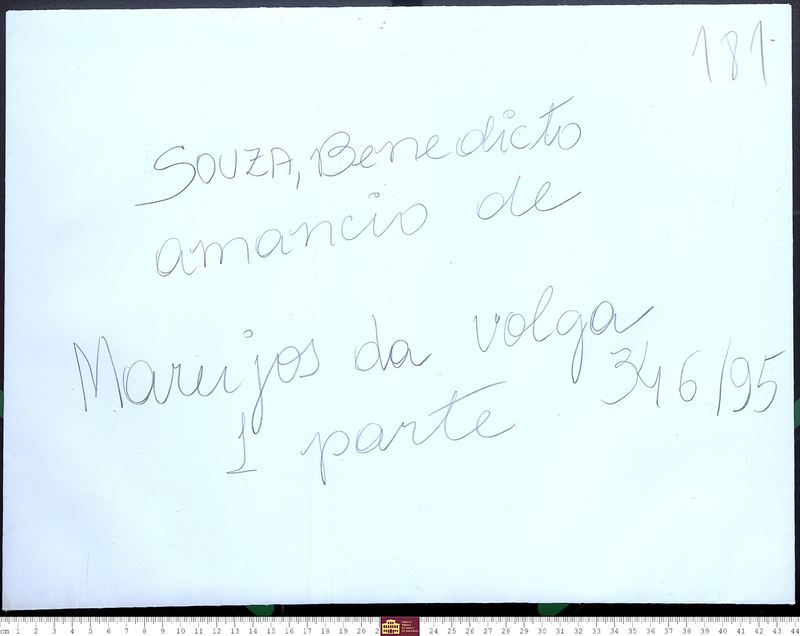 181
SOUZA, Benedicto
amancio de
Marujos da volga
346/95
1 parte
cm 1 2 3 4 5 6 7 8 9 10 11 12 13 14 15 16 17 18 19 20 24 25 26 27 28 29 30 31 32 33 34 35 36 37 38 39 40 41 42 43 44